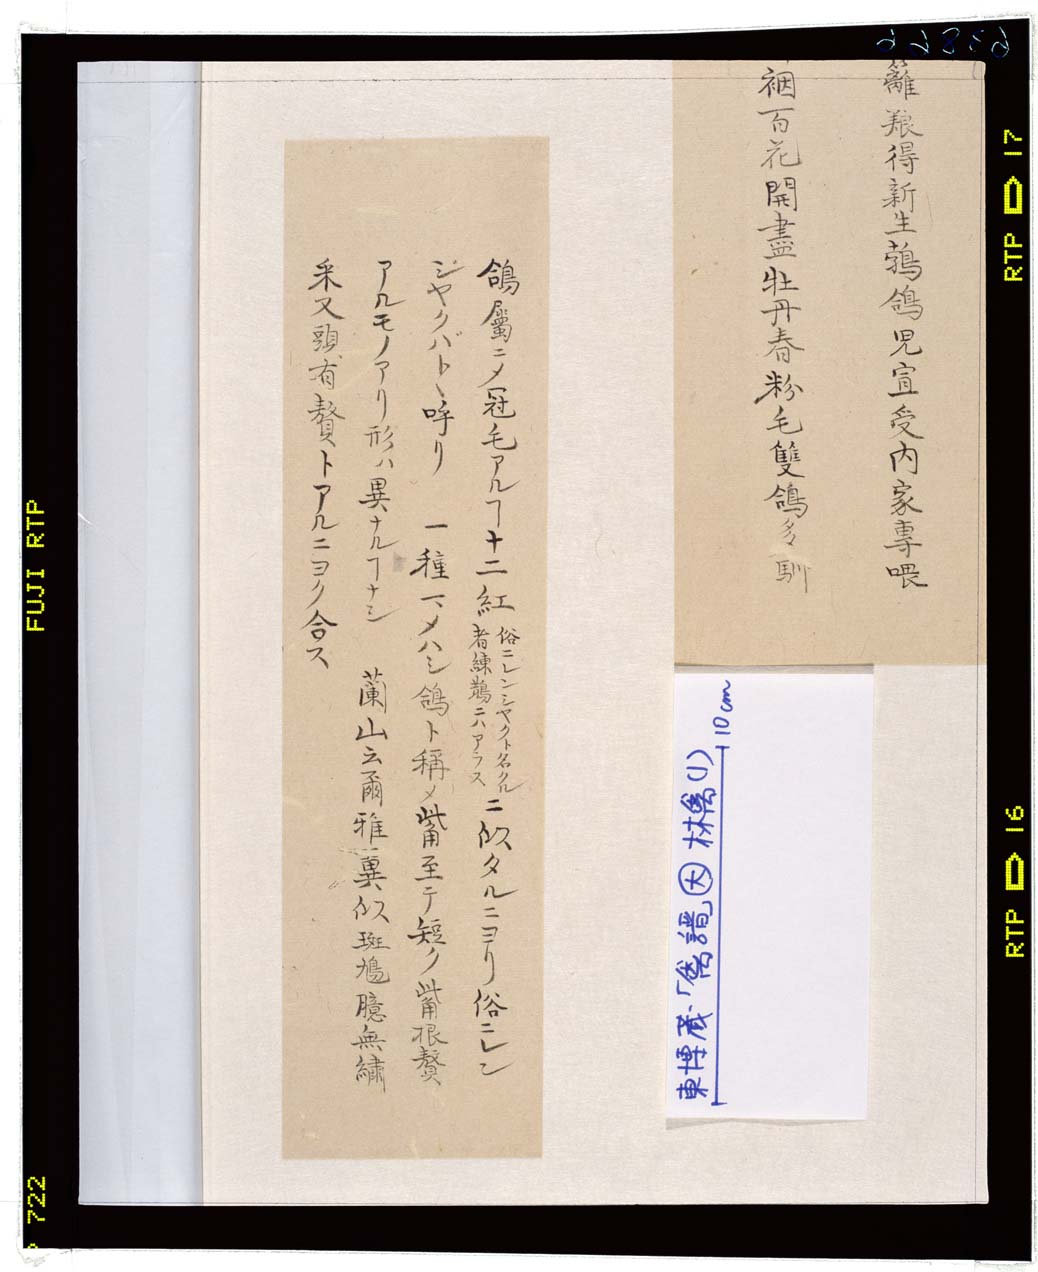 籬粮得新生鵓鴿児宣受内家専喂
裀百花開盡牡丹春粉毛雙鴿多馴
鴿屬ニメ冠毛アルヿ十二紅俗ニレンシヤクト名クル者練鵲ニハアラスニ似タルニヨリ俗ニレン
ジヤクバトヽ呼リ 一種マメハシ鴿ト称メ觜至テ短ク觜根贅
アルモノアリ形ハ異ナルヿナシ 蘭山云爾雅翼似斑鳩臆無繡
采又頭有贅トアルニヨク合ス
東博蔵・「禽譜」㊅林禽(1)
10cm
FUJI RTP
722
RTP 17
RTP 16